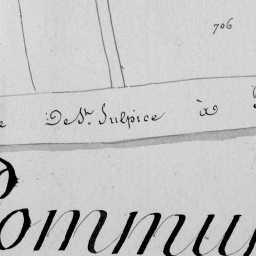 706
e De St. Sulpice à
Commu